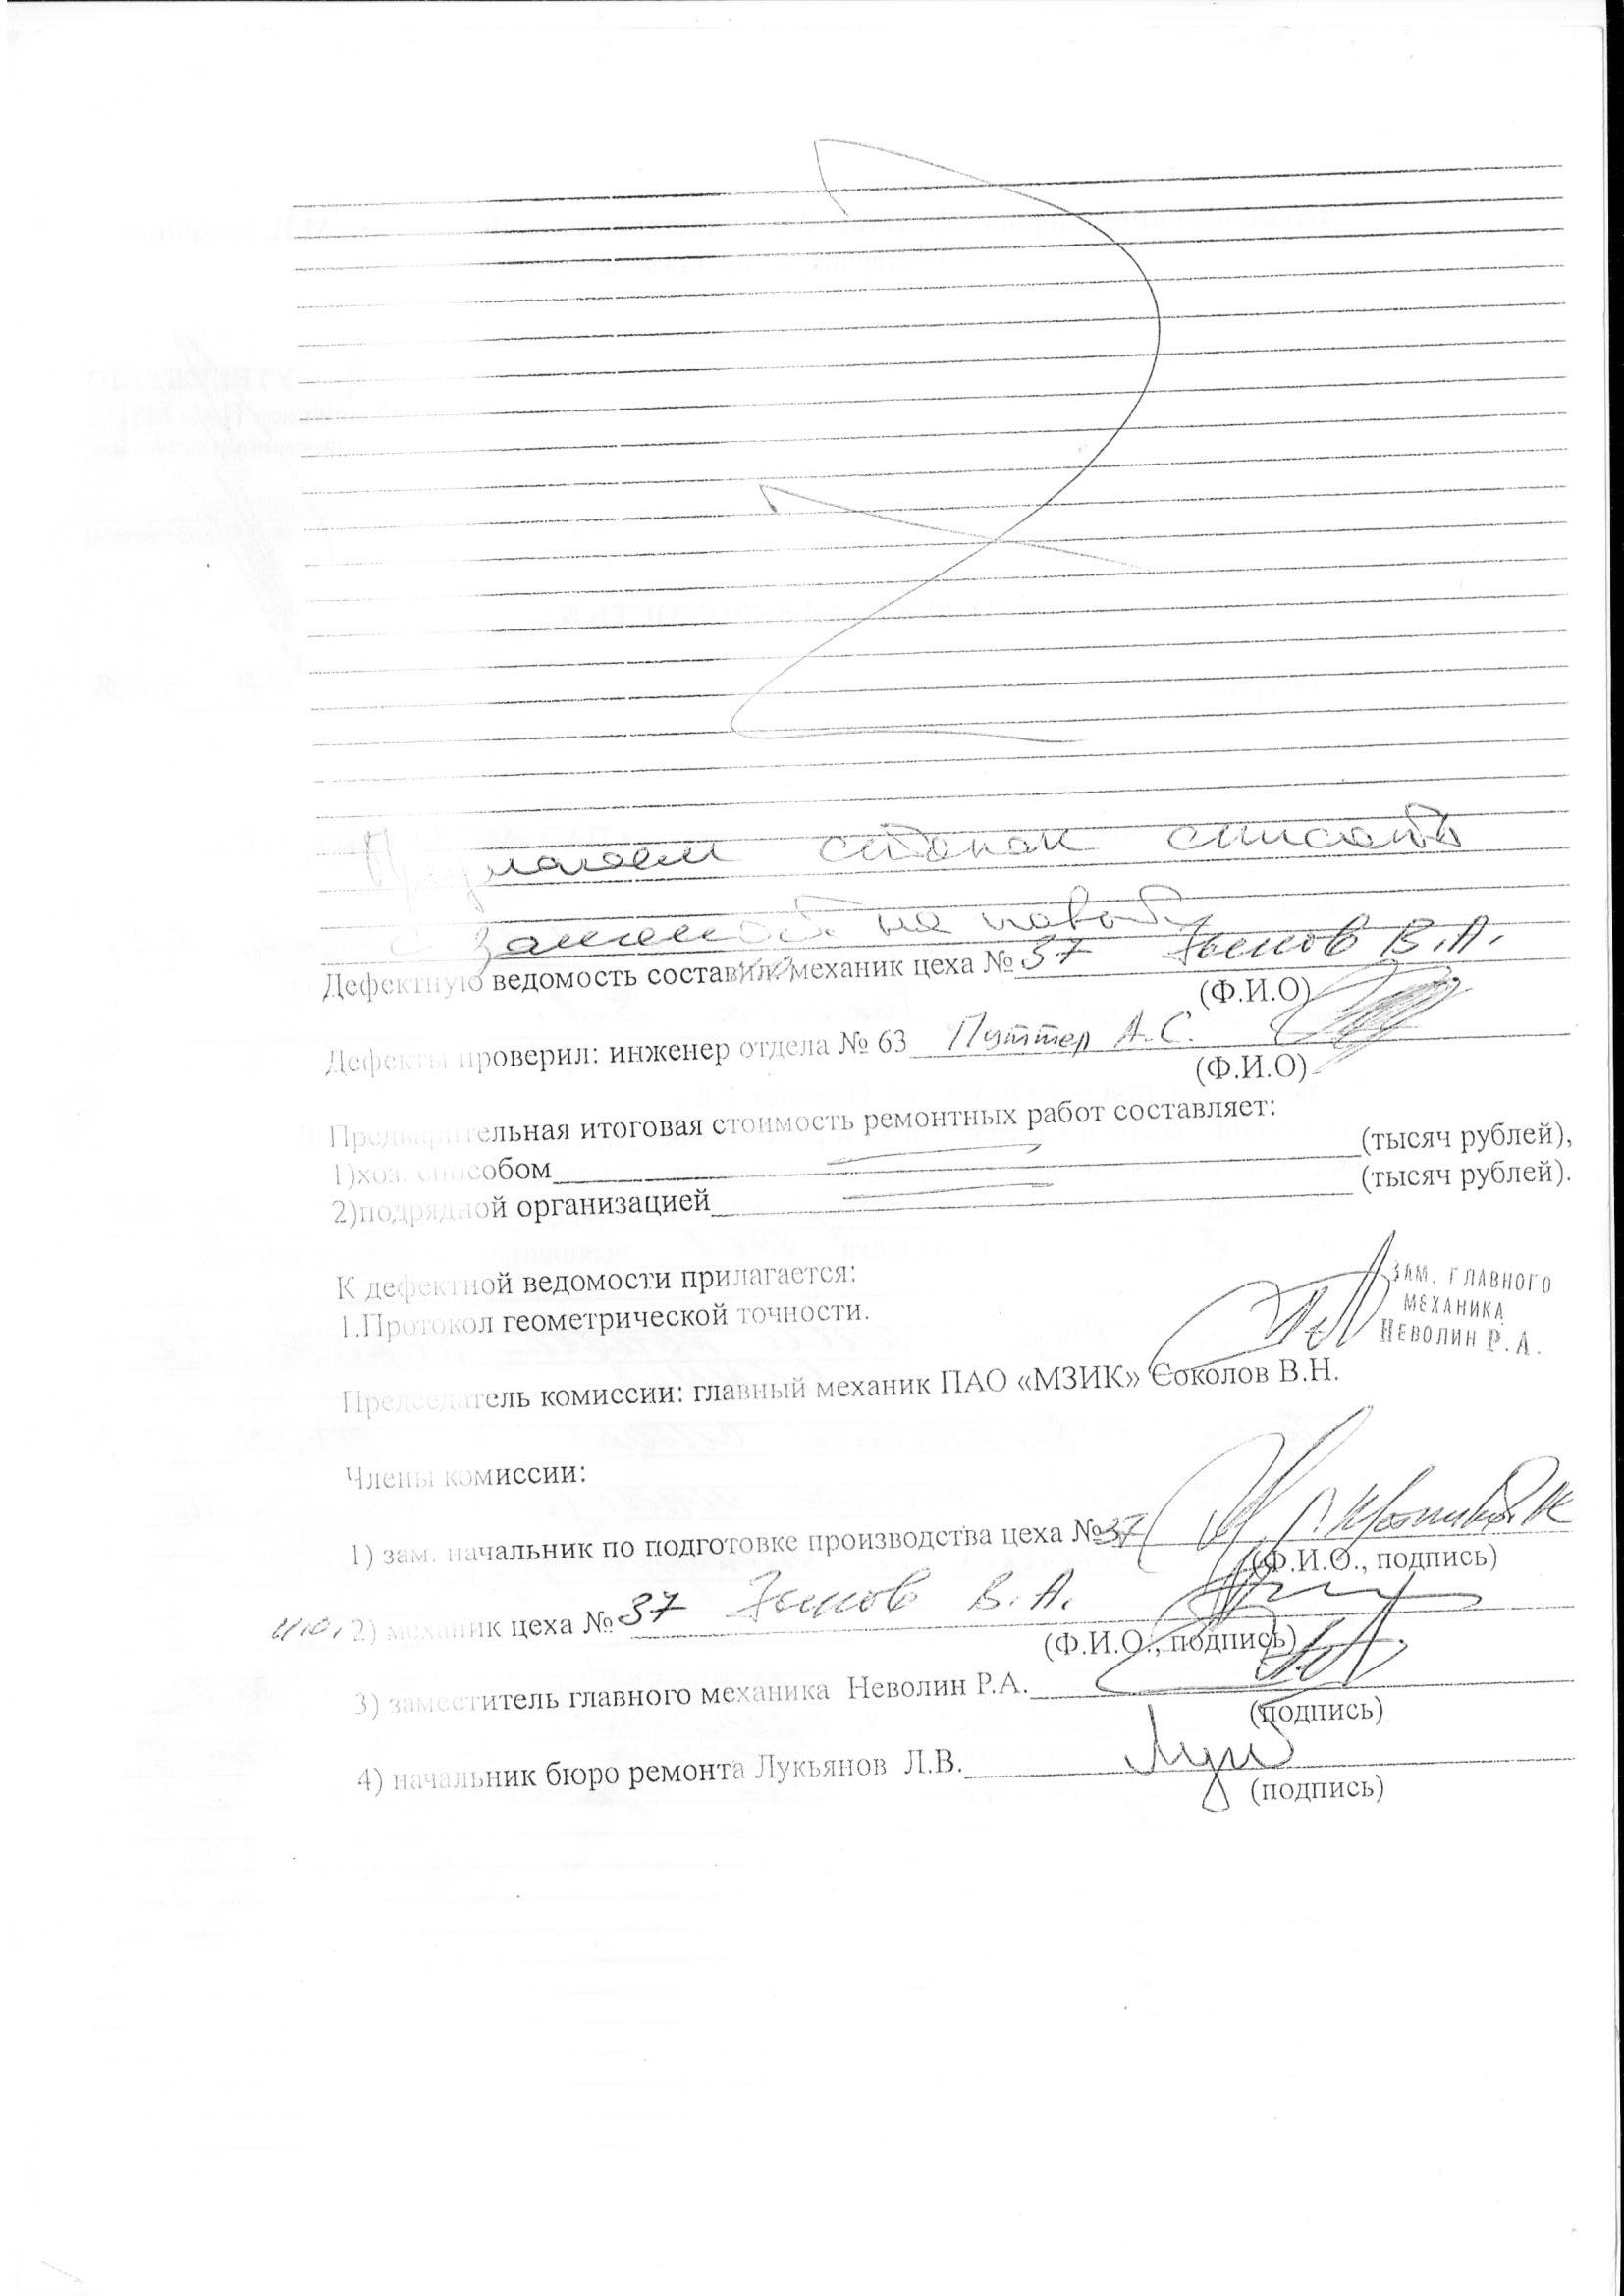 Предлагаем станок списать
с заменой на новый
Дефектную ведомость составил механик цеха № 37 В.А.
(Ф.И.О)
Дефекты проверил: инженер отдела № 63 Путтер А.С.
(Ф.И.О)
Предварительная итоговая стоимость ремонтных работ составляет:
1)хоз. способом (тысяч рублей),
2)подрядной организацией (тысяч рублей).
К дефектной ведомости прилагается:
1.Протокол геометрической точности.
ЗАМ. ГЛАВНОГО
МЕХАНИКА
НЕВОЛИН Р.А.
Председатель комиссии: главный механик ПАО «МЗИК» Соколов В.Н.
Члены комиссии:
1) зам. начальник по подготовке производства цеха № 37
(Ф.И.О., подпись)
и.о. 2) механик цеха № 37 В.А.
(Ф.И.О., подпись)
3) заместитель главного механика Неволин Р.А.
(подпись)
4) начальник бюро ремонта Лукьянов Л.В.
(подпись)